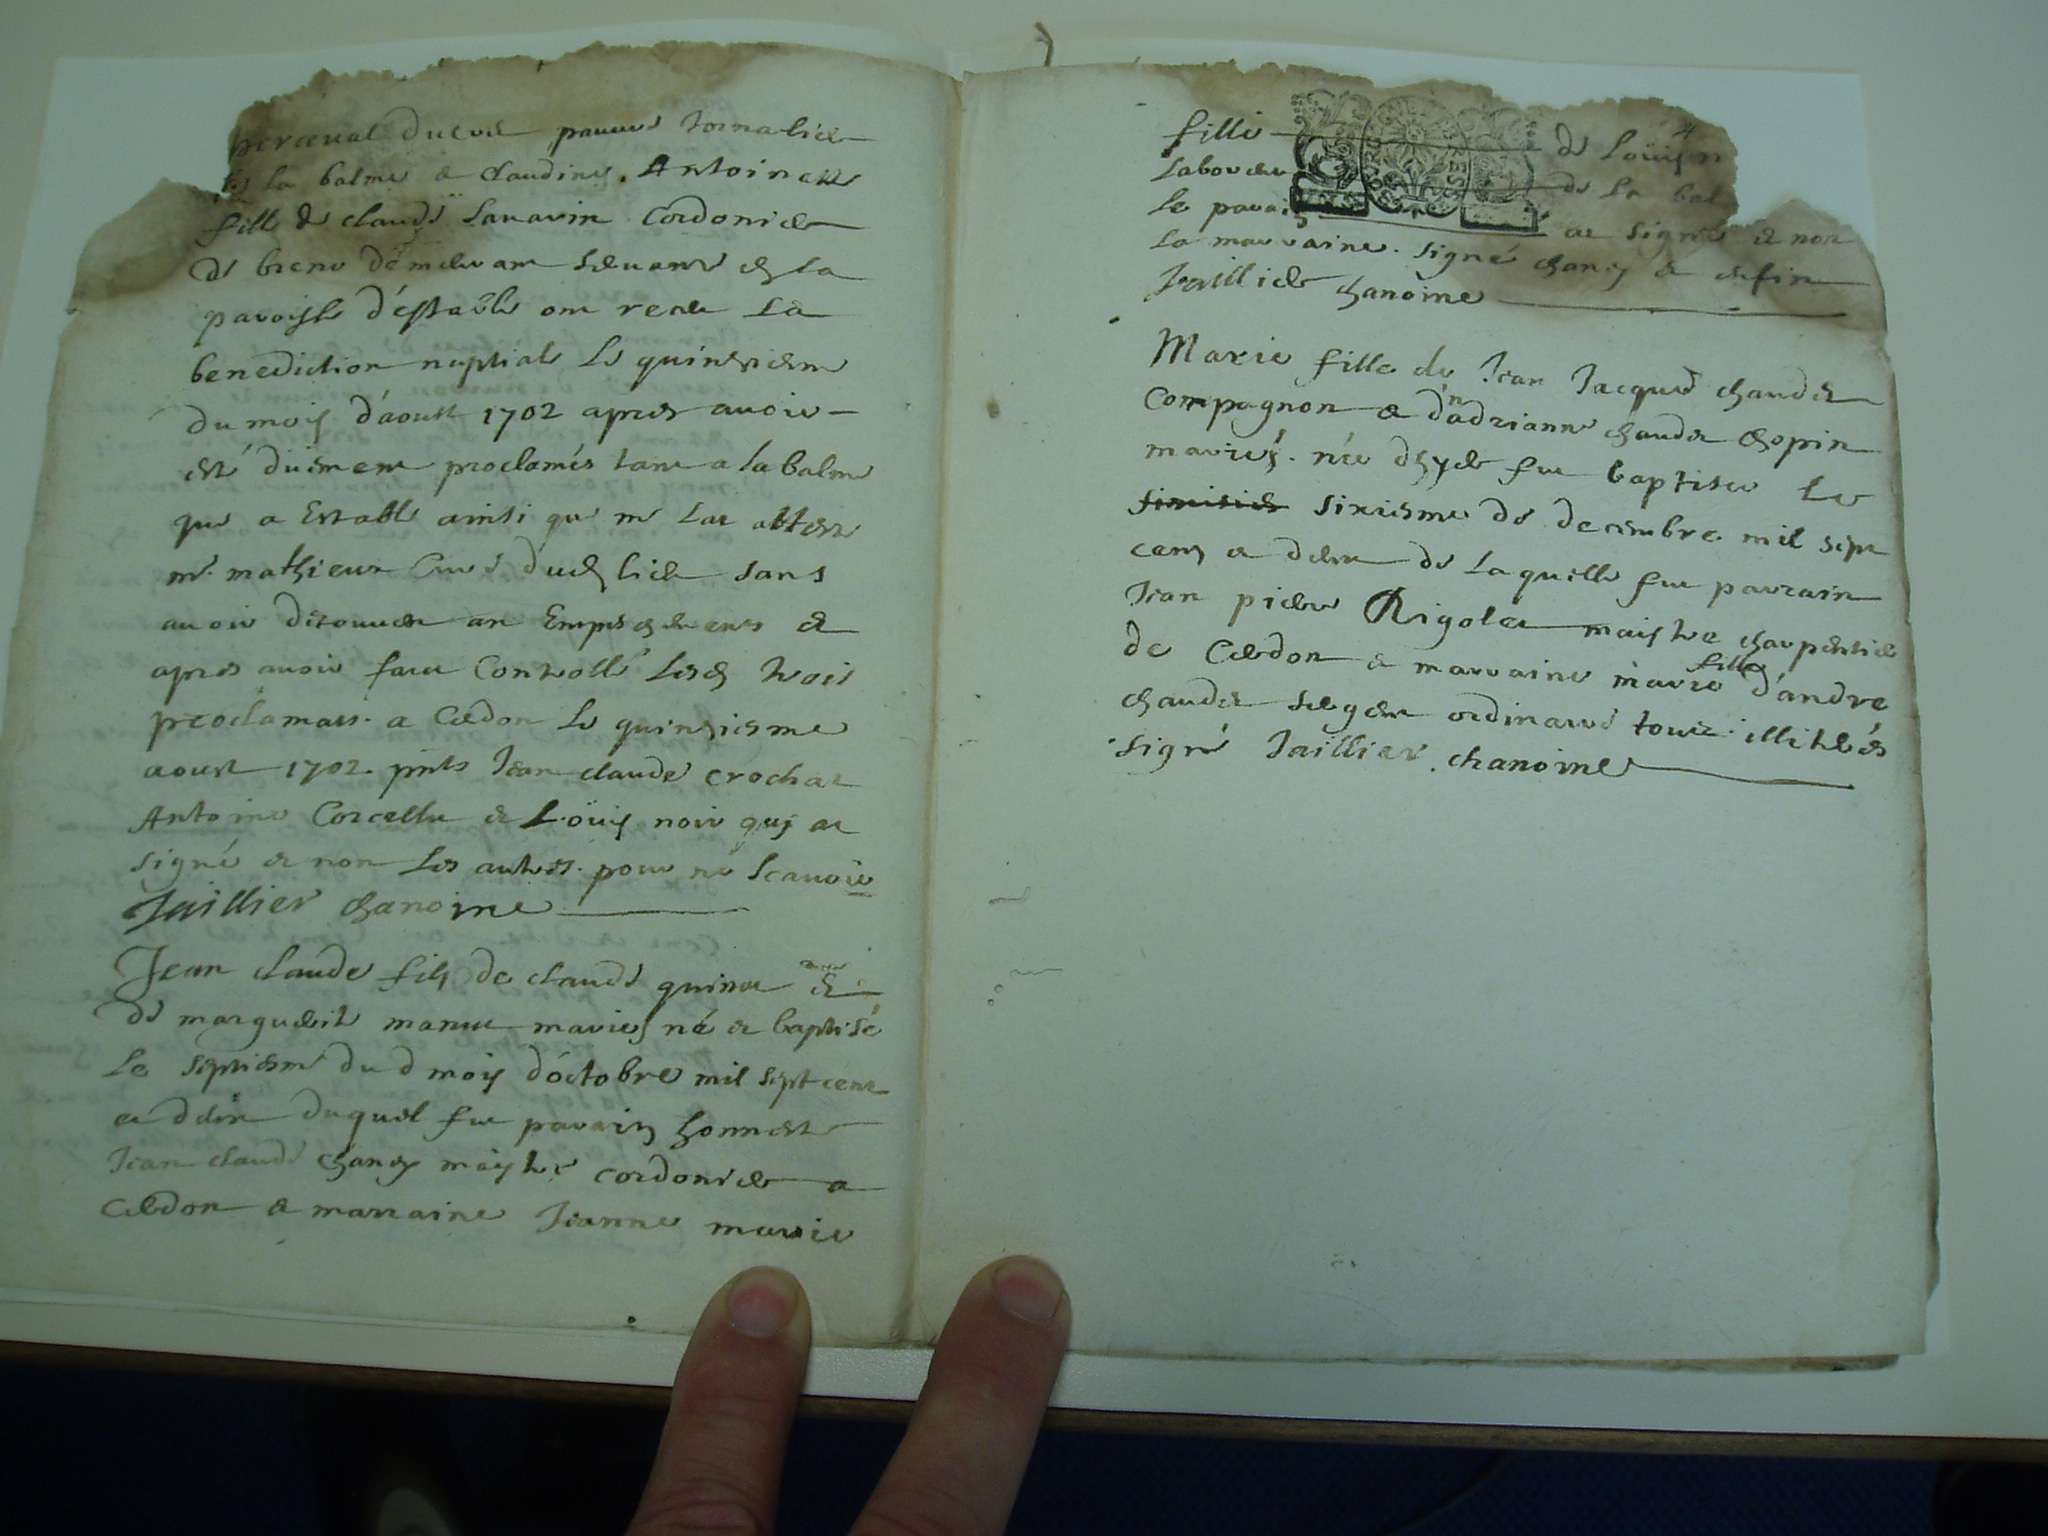 perceval ducret pauvre Jornalier
la balme & claudine Antoinette
fille de claude Savarin Cordonier
de breno demeurant servante en la
paroisse d'estable ont receu La
benediction nuptiale Le quinsiesme
du mois d'aoust 1702 apres avoir
esté düement proclamés tant a la balme
que a Estable ainsi que me L'at attesté
mr. mathieux Curé dud. lieu sans
avoir découvert an Empeschement et
apres avoir fait Controllé Lesd. trois
proclamats. a Cerdon Le quinsiesme
aoust 1702. pnts Jean claude crochat
Antoine Corcellu et Loüis noir quj at
signé et non Les autres. pour ne scavoir
Jaillier chanoine
Jean claude fils de claude quinat et
de marguerite manne mariés né et baptisé
Le septiesme dud mois d'octobre mil sept cent
et deux duquel fut parrain honneste
Jean claude chanej maistre cordonier a
Cerdon & marraine Jeanne marie
fille de Loüis
Laboureur de La bal
Le parrain at signé et non
La marraine. signé chanej &
Jaillier chanoine
Marie fille de Jean Jacque chander
Compagnon & d'adrianne chander chopin
mariés. née d'hyer fut baptisée Le
sixiesme de decembre. mil sept
cent et deux de Laquelle fut parrain
Jean pierre Rigolet maistre charpentier
de Cerdon & marraine marie fille d'andre
chander sergent ordinaire tous. illitérés
signé Jaillier. chanoine